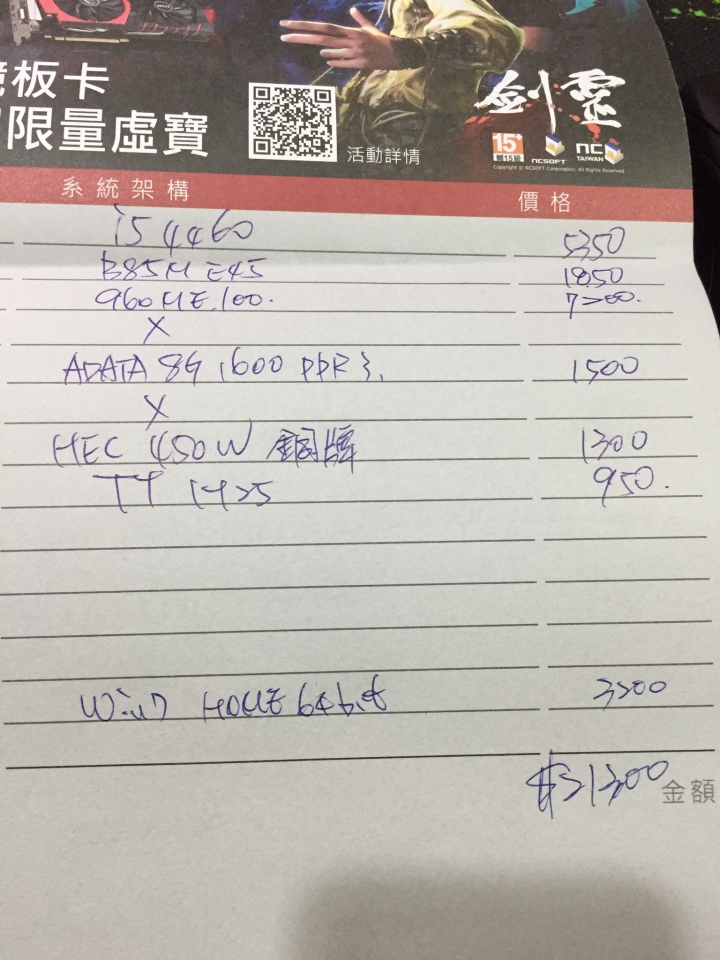 板卡
限量虛寶
活動詳情
劍靈
15+
輔15級
NCSOFT
NC TAIWAN
Copyright © NCSOFT Corporation. All Rights Reserved.
系統架構 價格
i5 4460 5350
B85M E45 1850
960M E.100. 7200.
X
ADATA 8G 1600 DDR3. 1500
X
HEC 450W 銅牌 1300
TT 950.
Win7 HOME 64bit 3200
$21300 金額